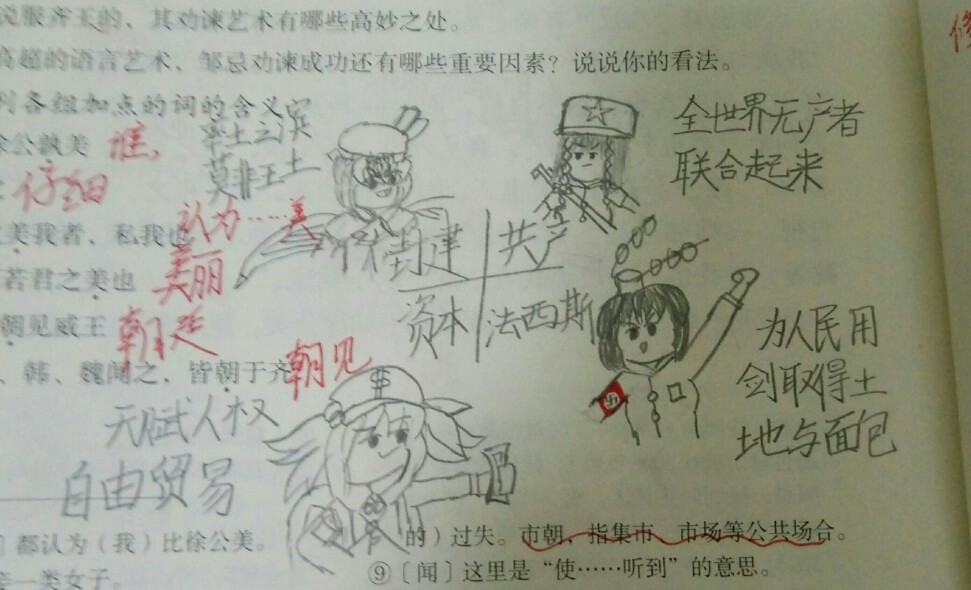 说服齐王的，其劝谏艺术有哪些高妙之处。
高超的语言艺术，邹忌劝谏成功还有哪些重要因素？说说你的看法。
列各组加点的词的含义
徐公孰美 谁，
仔细
率土之滨
莫非王土
全世界无产者
联合起来
美我者，私我也
认为……美
若君之美也 美丽
朝见威王 朝廷
、韩、魏闻之，皆朝于齐 朝见
封建 共产
资本 法西斯
为人民用
剑取得土
地与面包
天赋人权
自由贸易
$
都认为（我）比徐公美。
一类女子。
的）过失。市朝，指集市、市场等公共场合。
⑨〔闻〕这里是“使……听到”的意思。